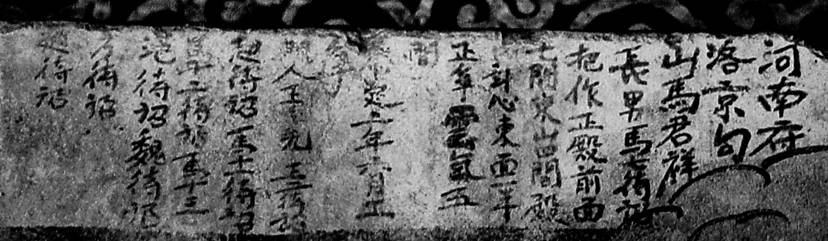 河南府
洛京勾
山馬君祥
長男馬七待詔
把作正殿前面
七間東山四間殿
心東面一半
正尊雲氣五
間
泰定二年六月
門人王秀先王二待詔
趙待詔馬十一待詔
馬十二待詔馬十三
范待詔魏待詔
方待詔
趙待詔